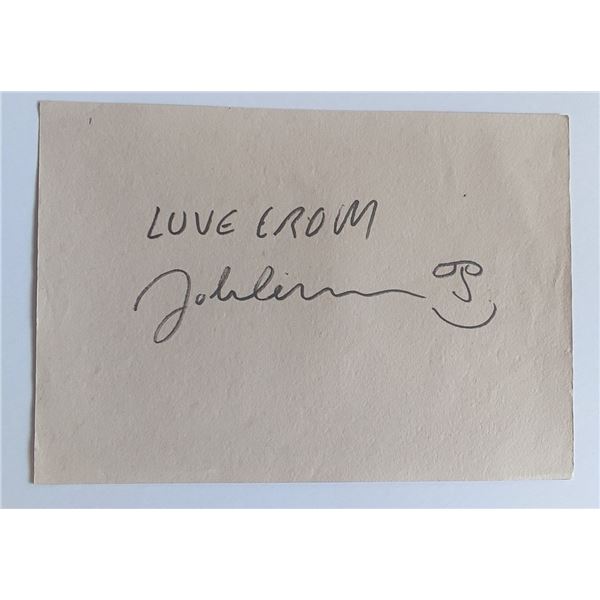 LUVE EROM
John Lennon